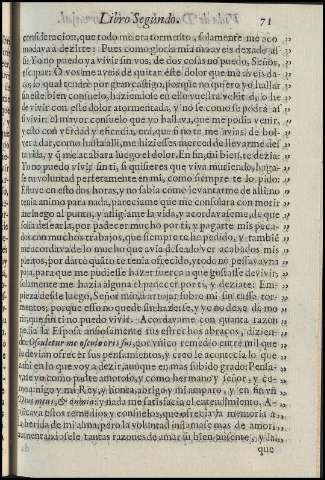 Libro Segundo. 71
consideracion, que todo me era tormento, solamente me aco
modava a dezirte: Pues como gloria mia me aveis dexado assi
Yo no puedo ya vivir sin vos, de dos cosas no puedo, Señor,
escapar: O vos me aveis de quitar este dolor que me aveis da-
do, lo qual tendrè por gran castigo, porque no quiero yo hallar
en este bien consuelo, haziendole en ella vuelta volet
de vivir con este dolor atormentada, y no se como se podrà
sufrir: el mayor consuelo que yo hallava, que me podia venir,
esto con verdad y eficacia, era, que si no te me avias de bol-
ver a dar, como hasta alli, me hiziesses merced de llevarme de
la vida, y q̃ me acabara luego el dolor. En fin, mi bien, te dezia:
Yo no puedo vivir sin ti, si quieres que viva muriendo, haga-
se tu voluntad perfectamente en mi, como siempre te lo pido:
Estuve en esto dos horas, y no sabia como levantarme de alli; no
tenia animo para nada, pareciame que me consolara con morir
me luego al punto, y afligiame la vida, y acordavaseme, de que
solia desearla, por padecer mucho por ti, y pagarte mis peca-
dos con muchos trabajos, que siempre te he pedido, y tambiè
me acordava de lo mucho que avia deseado ver acabados mis
por darte quãto te tenia ofrecido, y todo no pesava vna
paja, para que me pudiesse hazer fuerça a que gustasse de vivir,
solamente me hazia alguna el padecer por ti, y deziate: Em-
pieza desde luego, Señor mio, à arrojar sobre mi sin tassa tor-
mentos, porque esso no puede sin hazerse, y yo no dexe de mo
rir, que sin ti no puedo vivir. Acordavame con quanta razon
pedia la Esposa ansiosamente sus estrechos abraços, dizien-
do: Osculetur me osculo oris sui, por vnico remedio entre mil que
le devian ofrecer sus pensamientos, y creo le acontecia lo que
à mi en lo que voy a dezir, aunque en mas subido grado: Pensa-
vate yo como pastor amoroso, y como hermano y señor, y co-
mo amigo y mi Rey, y honra, abrigo y mi amparo, y en fin vn
Deus meus, & omnia: y nada me satisfacia el entendimiento. A-
plicava estos remedios y consuelos, que ofrecia la memoria a
la herida de mi alma, pero la voluntad inflamase mas de amor,
aumentandosele tantas razones de amar su bien ausente, y la
que